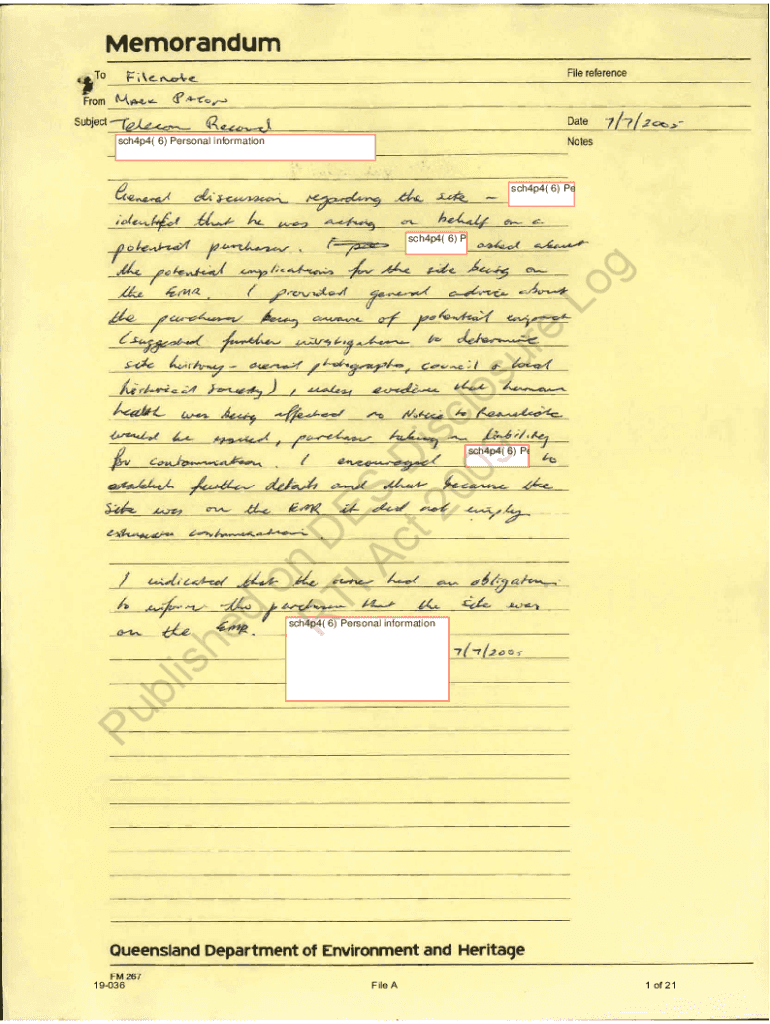 Memorandum
To Filenote File reference
From Mark
Subject Telecon Record Date 7/7/2005
sch4p4( 6) Personal information Notes
General discussion regarding the site - sch4p4( 6) Pe
identified that he was acting on behalf on a
potential purchaser. sch4p4( 6) P asked about
the potential implications for the site being on
the EMR. I provided general advice about
the purchaser being aware of potential
(suggested further investigations to determine
site history - photographs, council & local
historical society), unless evidence that human
health was being affected no Notice to Remediate
would be issued, purchaser taking on liability
for contamination. I encouraged sch4p4( 6) Pe to
establish further details and that because the
site was on the EMR it did not imply
contamination.
I indicated that the owner had an obligation
to inform the purchaser that the site was
on the EMR. sch4p4( 6) Personal information
7/7/2005
Published on DES Disclosure Log
RTI Act 2009
Queensland Department of Environment and Heritage
FM 267
19-036 File A 1 of 21